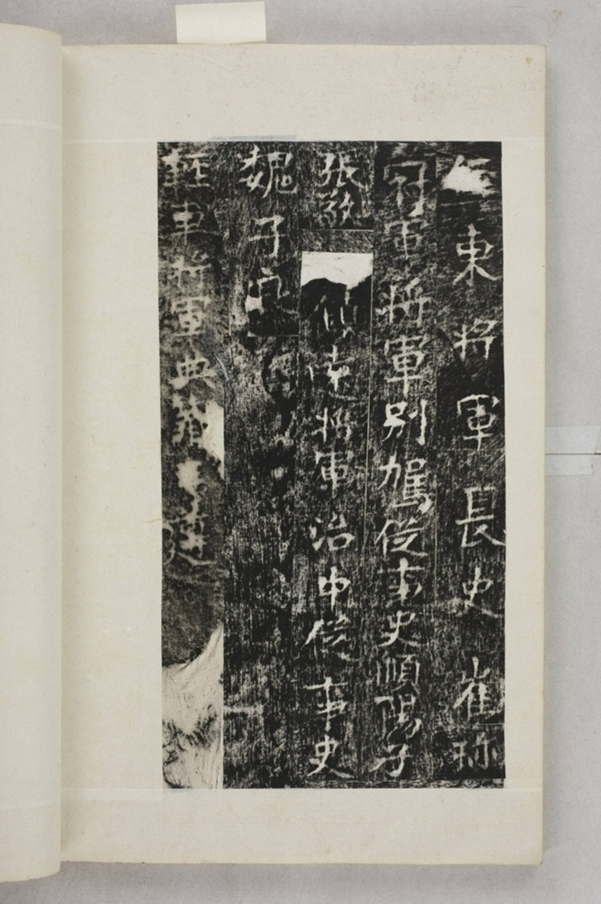 東將軍長史崔珎
冠軍將軍別駕從事史順陽子
張敬
南將軍治中從事史
魏子良
輕車將軍典籖